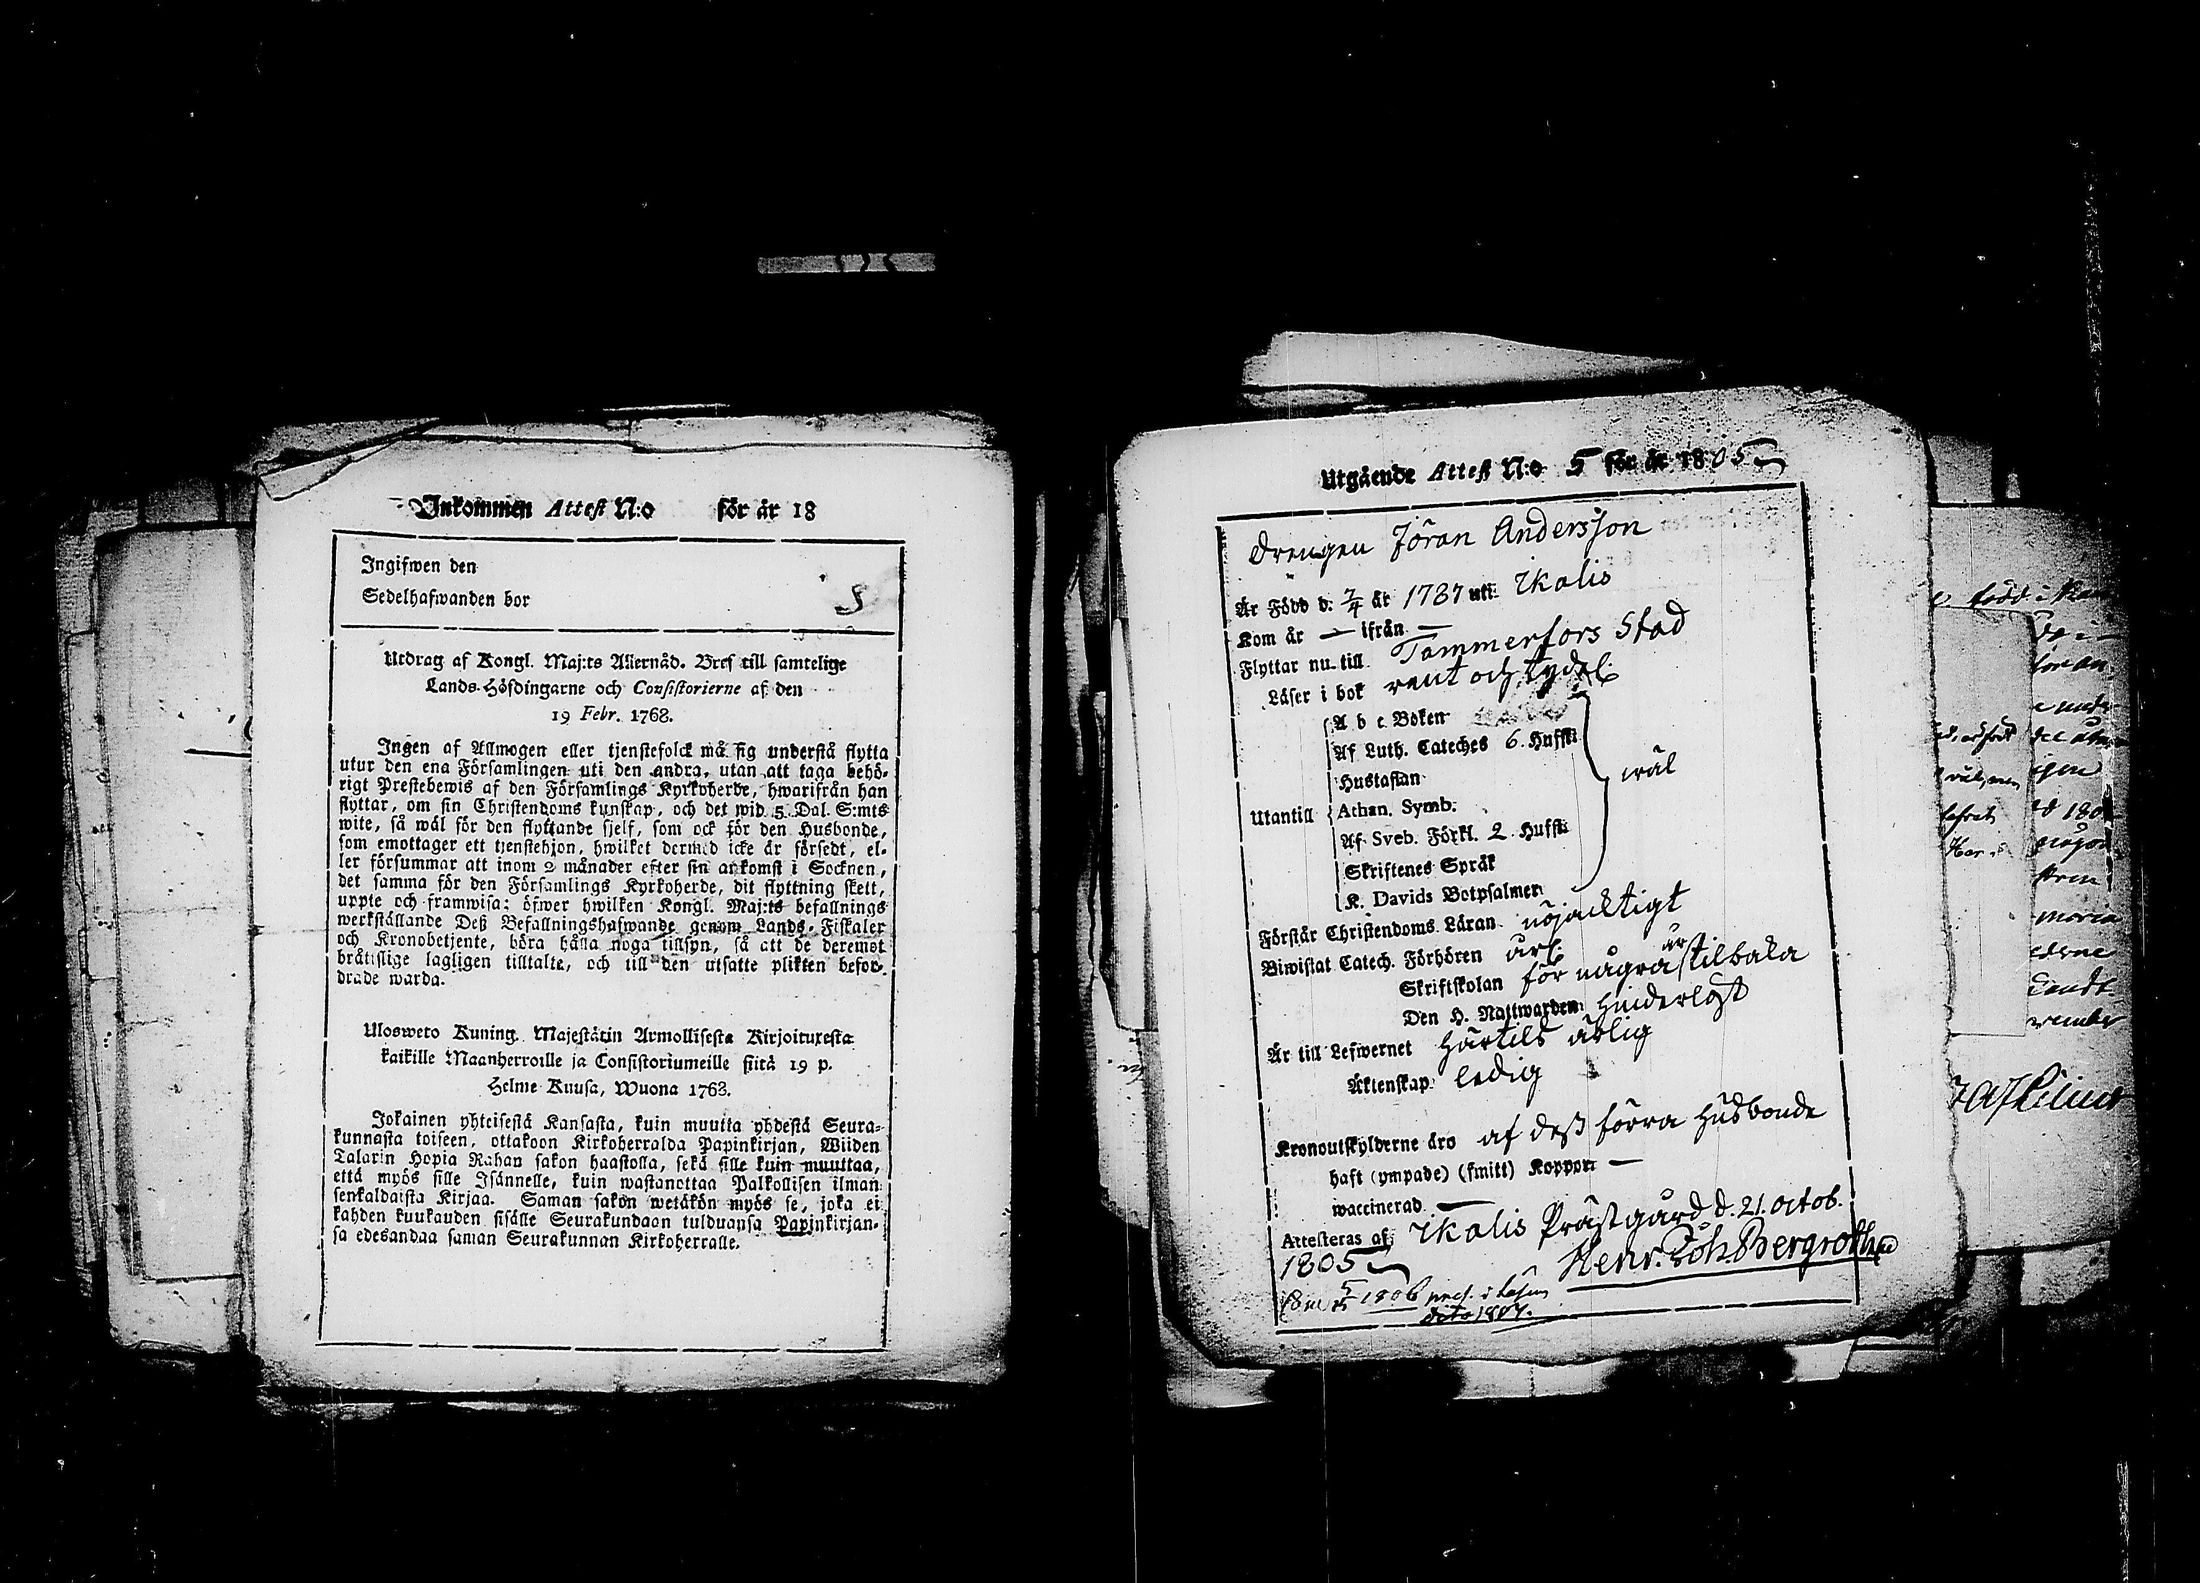 Inkommen Attest N:o för år 18
Ingifwen den
Sedelhafwanden bor
5
Utdrag af Kongl. Maj:ts Allernåd. Bref till samtelige
Lands-Höfdingarne och Consistorierne af den
19 Febr. 1768.
Ingen af Allmogen eller tjenstefolck må sig understå flytta
utur den ena Församlingen uti den andra, utan att taga behö-
rigt Prestebewis af den Församlings Kyrkoherde, hwarifrån han
flyttar, om sin Christendoms kunskap, och det wid 5 Dal. S:mts
wite, så wäl för den flyttande sjelf, som ock för den Husbonde,
som emottager ett tjenstehjon, hwilket dermed icke är försedt, el-
ler försummar att inom 2 månader efter sin ankomst i Socknen,
det samma för den Församlings Kyrkoherde, dit flyttning skett,
uppte och framwisa; öfwer hwilken Kongl. Maj:ts befallnings
werkställande Deß Befallningshafwande genom Lands-Fiskaler
och Kronobetjente, böra hålla noga tillsyn, så att de deremot
bråttslige lagligen tilltalte, och till den utsatte plikten befor-
drade warda.
Ulosweto Kuning. Majestätin Armollisesta Kirjoituxesta
kaikille Maanherroille ja Consistoriumeille siitä 19 p.
Helme Kuusa, Wuona 1763.
Jokainen yhteisestä Kansasta, kuin muutta yhdestä Seura-
kunnasta toiseen, ottakoon Kirkoherralda Papinkirjan, Wiiden
Talarin Hopia Rahan sakon haastolla, sekä sille kuin muuttaa,
että myös sille Isännelle, kuin wastanottaa Palkollisen ilman
senkaldaista Kirjaa. Saman sakon wetäkön myös se, joka ei
kahden kuukauden sisälle Seurakundaan tulduansa Papinkirjan-
sa edesandaa saman Seurakunnan Kirkoherralle.
Utgående Attest N:o 5 för år 1805
Drengen Jöran Andersson
Är Född d. 7/4 år 1787 uti Ikalis
Kom år — ifrån —
Flyttar nu till Tammerfors Stad
Läser i bok rent och tydel.
A b c Boken
Af Luth. Cateches 6. Hufst:
Hustaflan
wäl
Utantill Athan. Symb.
Af Sveb. Förkl. 2 Hufst:
Skriftenes Språk
K. Davids Botpsalmer
Förstår Christendoms Läran nöjacktigt
Biwistat Catech. Förhören årl.
Skriftskolan för några år tilbaka
Den H. Nattwarden Hinderlöst
Är till Lefwernet Härtils ärlig
Äktenskap ledig
Kronoutskylderne äro af deß förra Husbonde
haft (ympade) (smitt) Koppor —
waccinerad —
Attesteras af Ikalis Prästgård d. 21. Octob.
1805
Henr. Joh. Bergroth
1806
dito 1807.